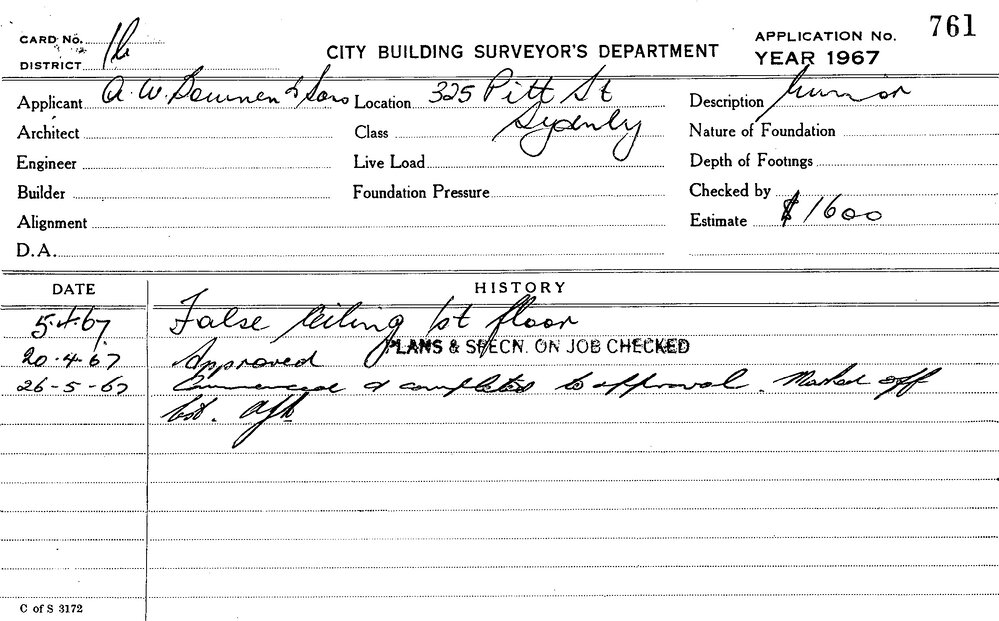 761
CARD No. 1b
APPLICATION No.
CITY BUILDING SURVEYOR'S DEPARTMENT
YEAR 1967
DISTRICT
Applicant A. W. & Sons Location 325 Pitt St Description
Architect Class Sydney Nature of Foundation
Engineer Live Load Depth of Footings
Builder Foundation Pressure Checked by
Alignment Estimate $1600
D.A.
DATE HISTORY
5.4.67 False Ceiling 1st floor
PLANS & SPECN. ON JOB CHECKED
20.4.67 Approved
26-5-67 Commenced & completed to approval. Marked off
C of S 3172